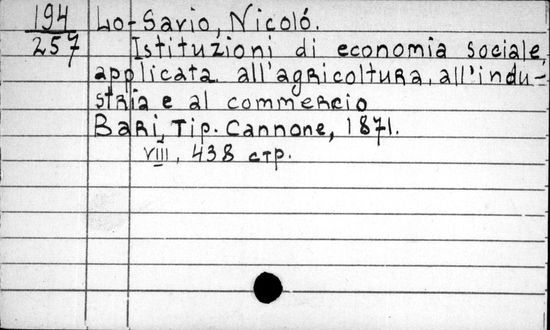 194
257
Lo-Savio, Nicoló.
Istituzioni di economia sociale,
applicata all'agricoltura, all'indu-
stria e al commercio
Bari, Tip. Cannone, 1871.
VIII, 438 стр.